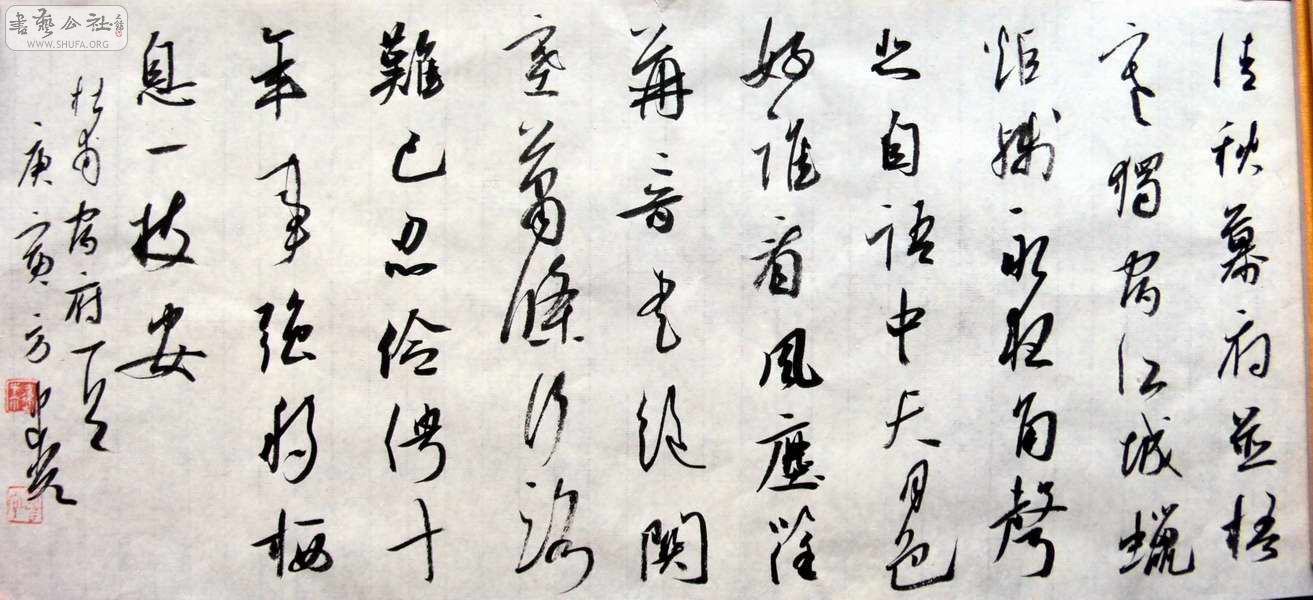 清秋幕府並梧
寒獨宿江城蠟
炬殘永夜角聲
悲自語中天月色
好誰看風塵荏
苒音書絕關
塞蕭條行路
難已忍伶俜十
年事強移栖
息一枝安
杜甫宿府一首
庚寅方
書藝公社
WWW.SHUFA.ORG